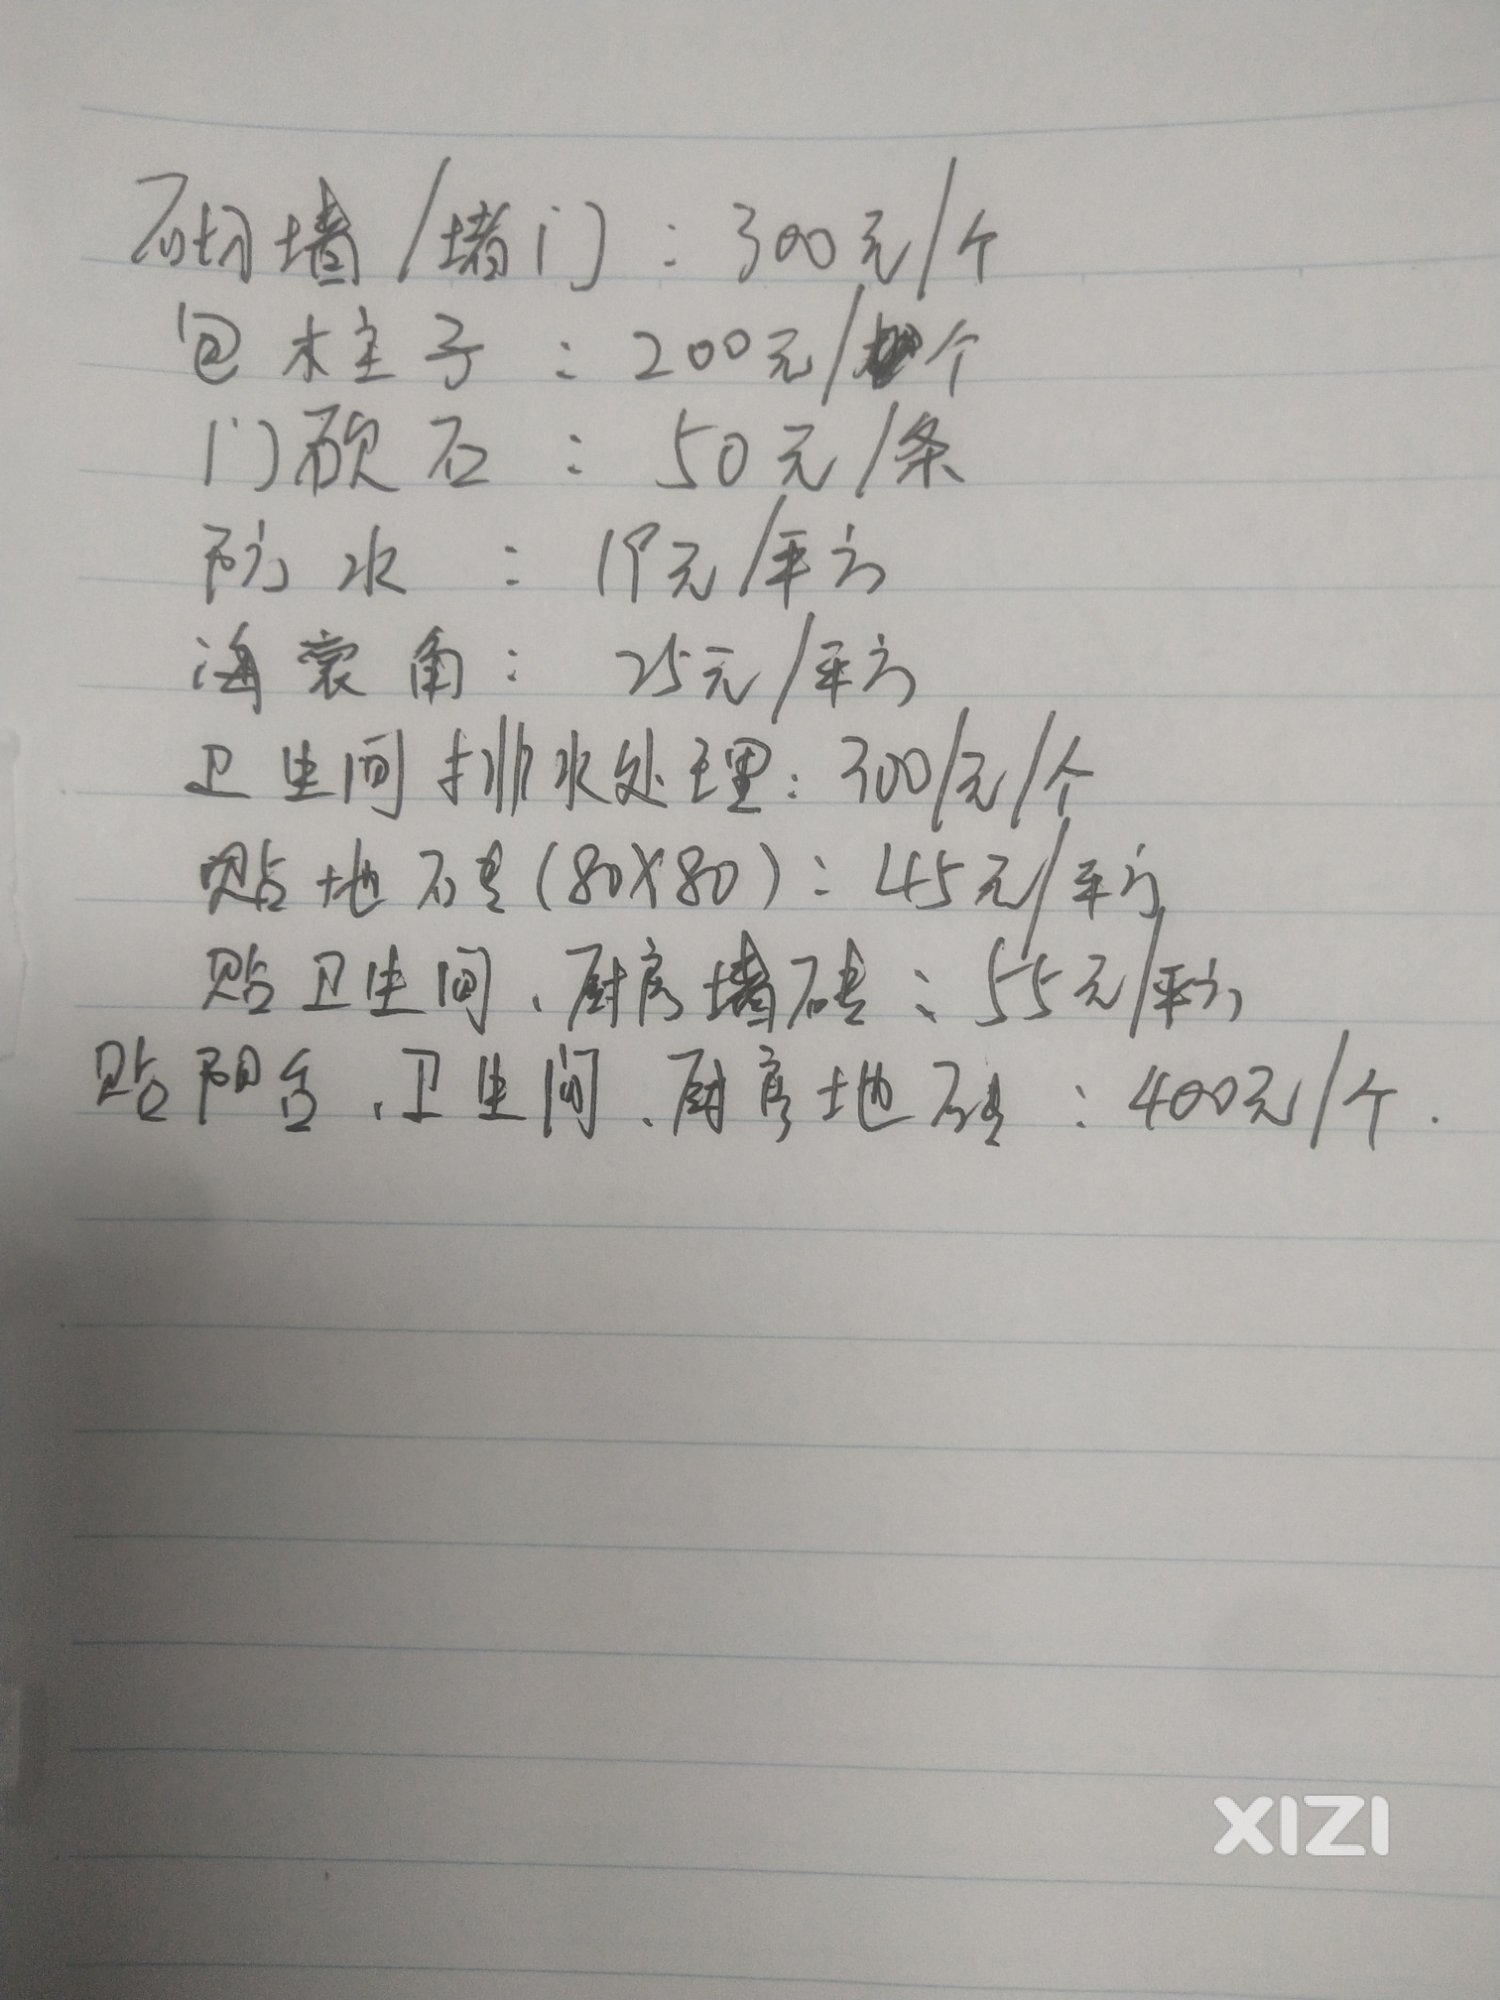 砌墙/堵门：300元/个
包柱子：200元/个
门砍石：50元/条
防水：19元/平方
海裳角：25元/平方
卫生间排水处理：300/元/个
贴地砖(80X80)：45元/平方
贴卫生间、厨房墙砖：55元/平方
贴阳台、卫生间、厨房地砖：400元/个.
XIZI